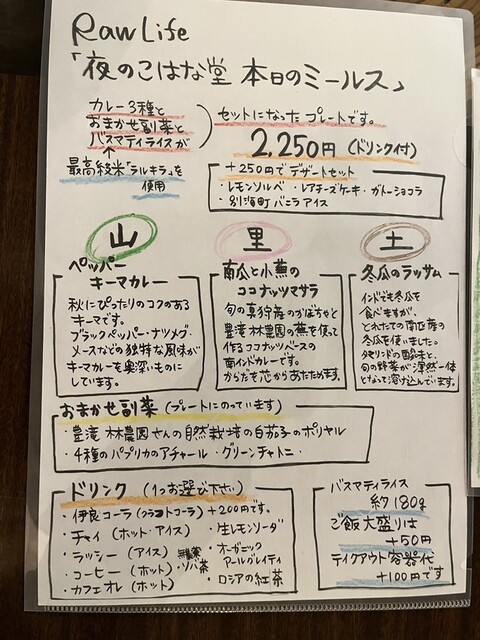 Raw Life
「夜のこはな堂 本日のミールス」
カレー3種と
おまかせ副菜と
バスマティライスが
セットになったプレートです。
最高級米「ラルキラ」を
使用
2,250円(ドリンク付)
+250円でデザートセット
・レモンソルベ ・レアチーズケーキ・ガトーショコラ
・別海町バニラアイス
山
ペッパー
キーマカレー
秋にぴったりのコクのある
キーマです。
ブラックペッパー・ナツメグ・
メースなどの独特な風味が
キーマカレーを奥深いものに
しています。
里
南瓜と小蕪の
ココナッツマサラ
旬の真狩産のかぼちゃと
豊滝林農園の蕪を使って
作るココナッツベースの
南インドカレーです。
からだを芯からあたためます。
土
冬瓜のラッサム
インドでも冬瓜を
食べますが、
とれたての南区産の
冬瓜を使いました。
タマリンドの酸味と、
旬の野菜が渾然一体
となって溶け込んでいます。
おまかせ副菜(プレートにのっています)
・豊滝 林農園さんの自然栽培の白茄子のポリヤル
・4種のパプリカのアチャール ・グリーンチャトニ・
ドリンク(1つお選び下さい)
・伊良コーラ(クラフトコーラ)+200円です。
・チャイ(ホット・アイス)
・ラッシー(アイス)
・コーヒー(ホット)
・カフェオレ(ホット)
・ソバ茶
・生レモンソーダ
・オーガニック
アールグレイティ
・ロシアの紅茶
バスマティライス
約180g
ご飯大盛りは
+50円
テイクアウト容器代
+100円です